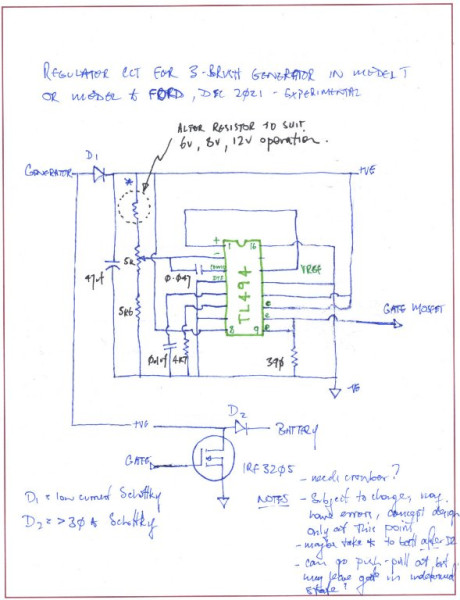 REGULATOR CCT FOR 3-BRUSH GENERATOR IN MODEL T
OR MODEL A FORD, DEC 2021 - EXPERIMENTAL
ALTER RESISTOR TO SUIT
6V, 8V, 12V operation.
D1
GENERATOR
+VE
*
+
1
16
-
5K
0.047
DTC
VREF
TL494
C
47uf
5K6
E
GATE MOSFET
8
9
0.1uf
4K7
390
-VE
D2
+VE
BATTERY
GATE
IRF3205
D1 = low current Schottky
D2 = >30A Schottky
NOTES
- needs crowbar?
- Subject to change, may
have errors, concept design
only at this point
- maybe take to batt after D2
- can go push-pull out but
may leave gate in
state?